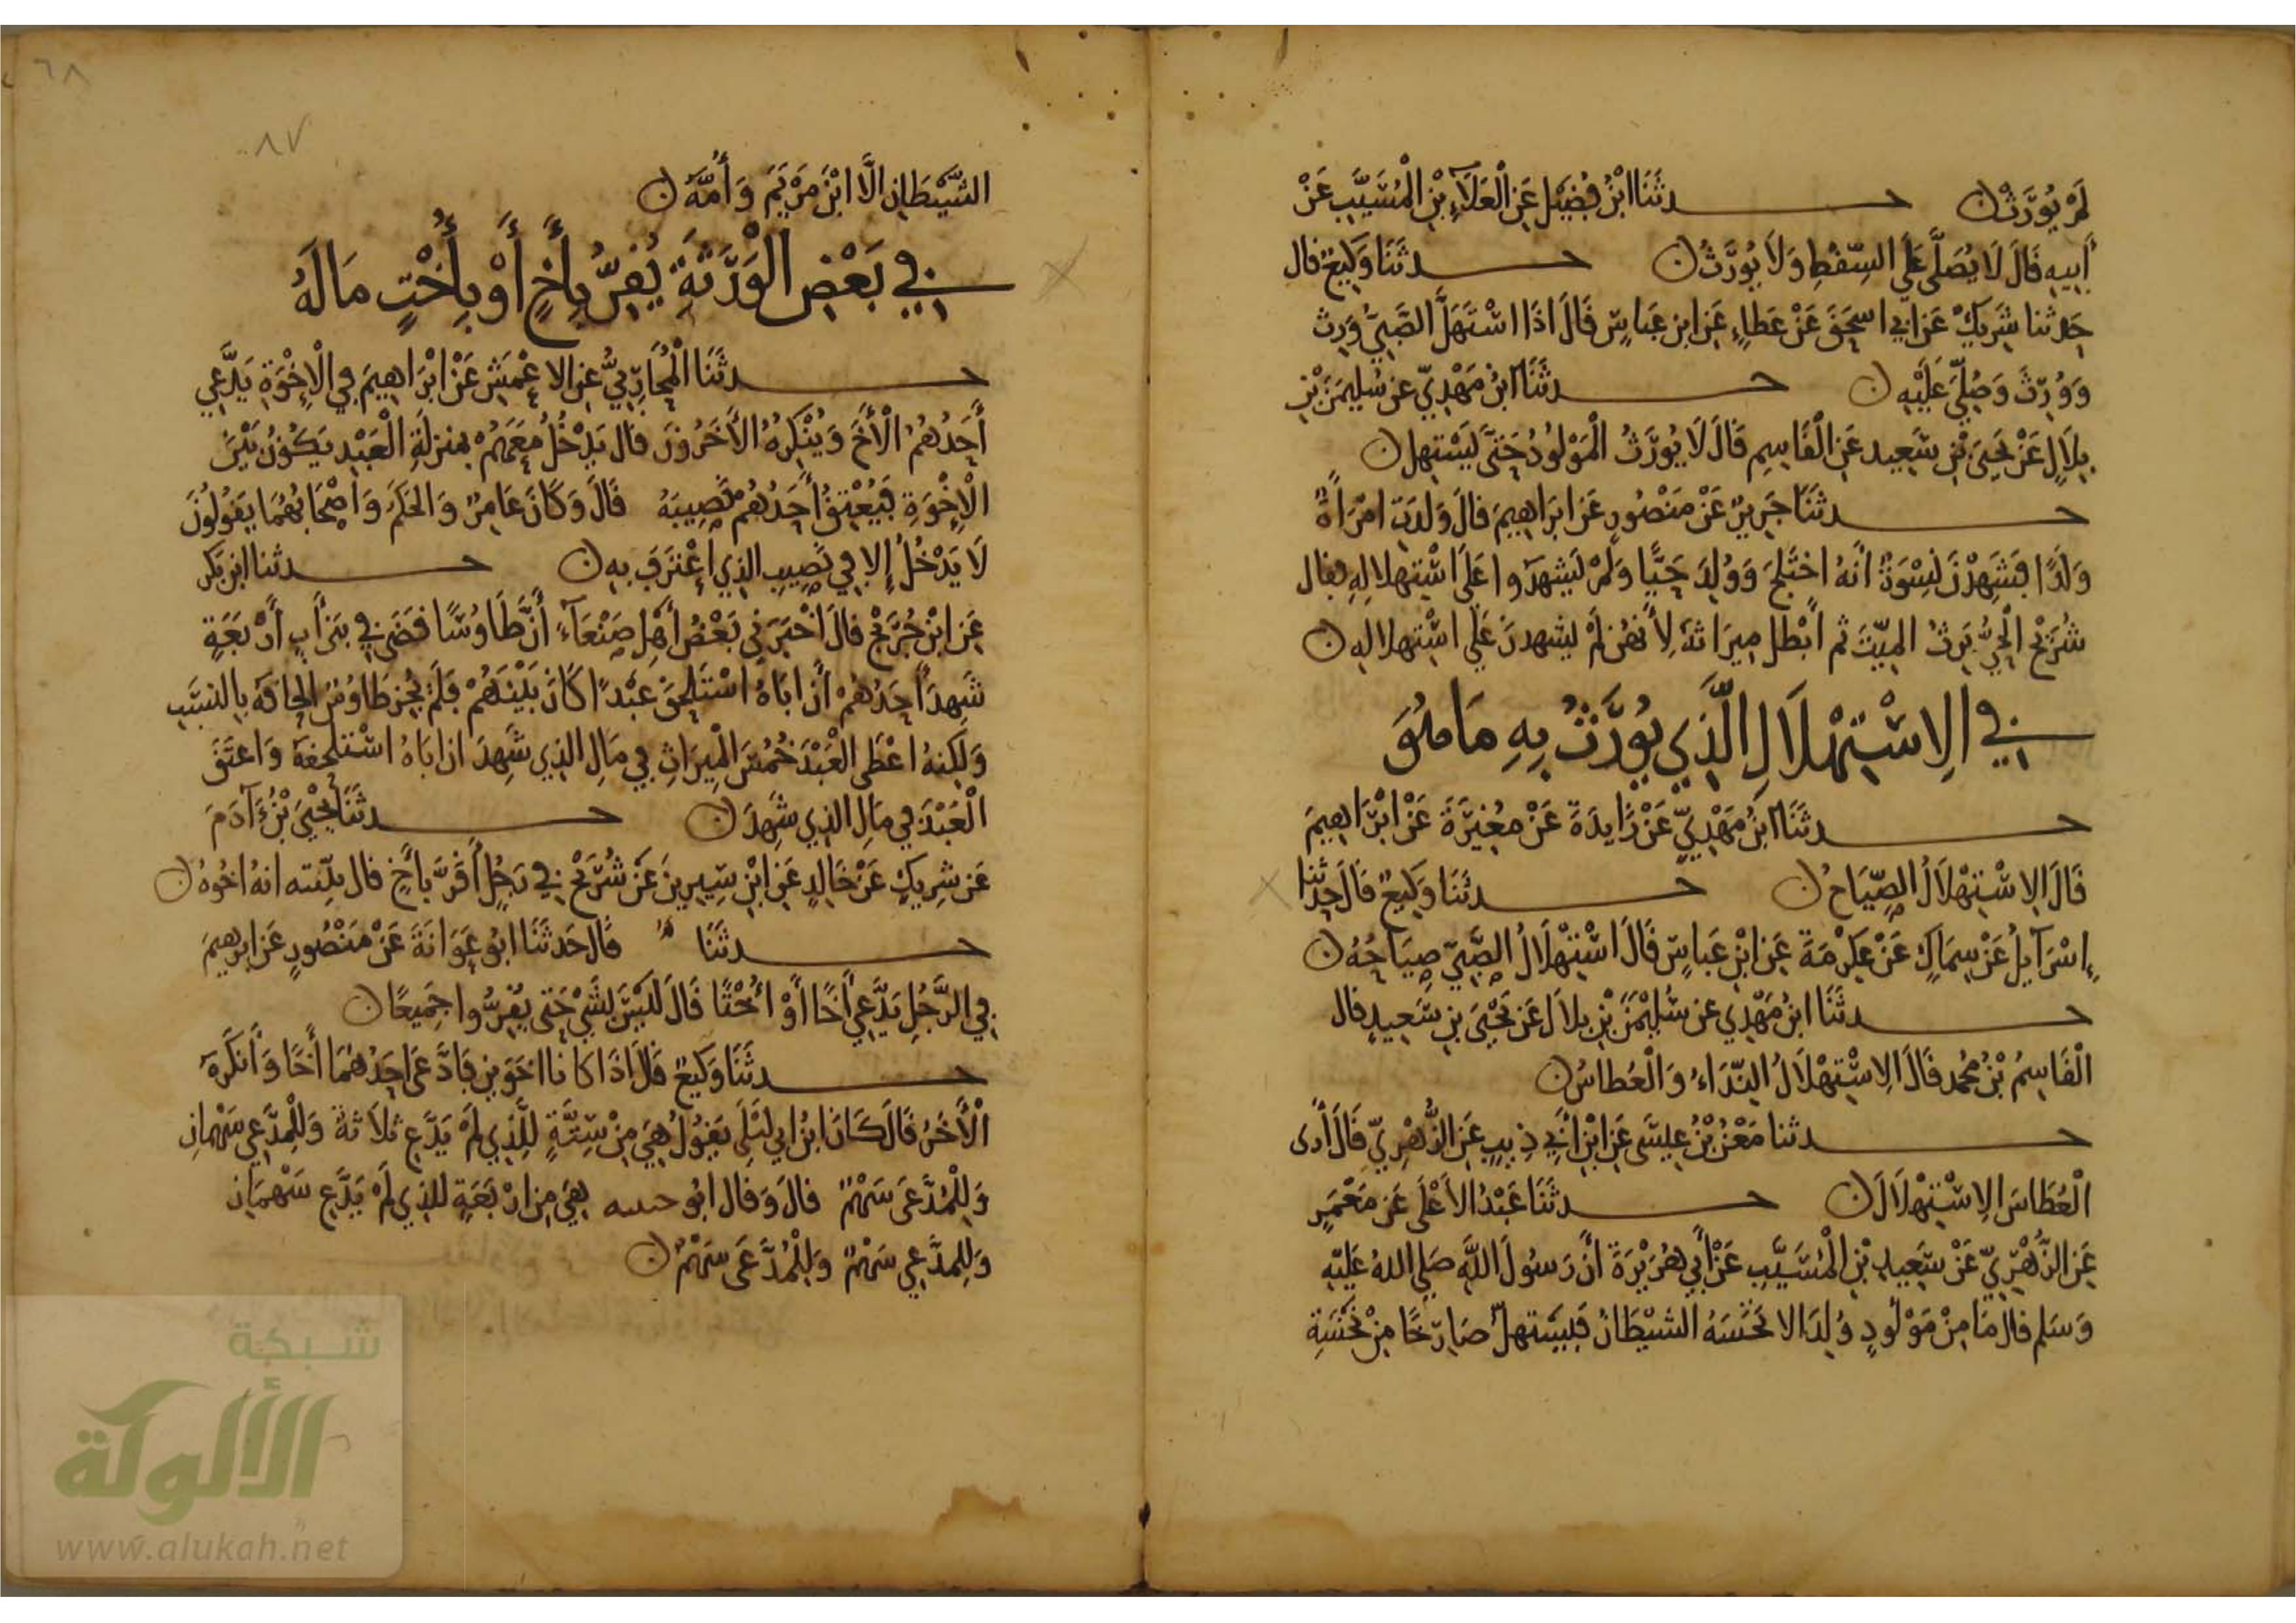 لَمْ يُوَرَّثْ ۞ حدثَنَا ابْنُ فُضَيْل عَنِ الْعَلَاءِ بْنِ الْمُسَيَّبِ عَنْ
أَبِيهِ قَالَ لَا يُصَلَّى عَلَى السِّقْطِ وَلَا يُوَرَّثُ ۞ حدثَنَا وَكِيعٌ قال
حَدثنا شَرِيكٌ عَن ابي اسحَقَ عَنْ عَطاءٍ عَنِ ابنِ عَباسٍ قَالَ اذَا اسْتَهَلَّ الصَّبِيُّ وَرِثَ
وَوُرِّثَ وَصُلِّيَ عَلَيْهِ ۞ حدثَنَا ابنُ مَهْدِيٍّ عن سُليمَنَ بْنِ
بِلَالٍ عَنْ يَحْيَى بْنِ سَعِيد عَنِ الْقَاسِمِ قَالَ لَا يُوَرَّثُ الْمَوْلُودُ حَتَّى يَسْتهل ۞
حدثَنَا جَرِيرٌ عَنْ مَنْصُورٍ عَن ابرَاهِيمَ قالَ وَلدَت امْرَاةٌ
وَلَدًا فَشَهِدْنَ نِسْوَةٌ انَّهُ اختَلَجَ وَوُلِدَ حَيًّا وَلَمْ يَشهدوا عَلَى اسْتِهلالِهِ فقال
شُرَيْحٌ الْحَيُّ يَرِثُ المَيِّتَ ثم أبْطل مِيرَاثَهُ لِأَنهُن لَمْ يشهدنَ عَلَى اسْتِهلالِهِ ۞
في الِاسْتِهْلَالِ الَّذِي يُوَرَّثُ بِهِ مَا هُوَ
حدثَنَا ابنُ مَهْدِيٍّ عَنْ زَايِدَةَ عَنْ مغِيَرَةَ عَنْ ابْرَاهِيمَ
قَالَ الِاسْتِهْلَالُ الصِّيَاحُ ۞ حدثَنَا وَكِيعٌ قَالَ حَدثنا
إِسْرَآيِلُ عَنْ سِمَاكٍ عَنْ عِكْرِمَةَ عَنِ ابْنِ عَباسٍ قَالَ اسْتِهْلَالُ الصَّبِيِّ صِيَاحُهُ ۞
حدثَنَا ابنُ مَهْدِي عن سُلَيْمَنَ بْنِ بلال عَن يَحْيَى بنِ سَعِيدٍ قال
الْقَاسِمُ بْنُ مُحمد قَالَ الِاسْتِهْلَالُ النِّدَاءُ وَالْعُطاسُ ۞
حدثنا مَعْنُ بْنُ عِيسَى عَنِ ابْنِ أَبِي ذِيبٍ عَنِ الزُّهْرِيِّ قَالَ أَرى
الْعُطَاسَ الِاسْتِهْلَالَ ۞ حدثَنَا عَبْدُ الأَعْلَى عَن مَعْمَرٍ
عَنِ الزُّهْرِيِّ عَنْ سَعِيدِ بْنِ الْمُسَيَّبِ عَنْ أَبِي هُرَيْرَةَ أَنَّ رَسُولَ اللَّهِ صَلى اللهُ عَلَيْهِ
وَسَلم قالَ مَا مِنْ مَوْلُودٍ وُلِدَ الا نَخَسَهُ الشيْطَانُ فَيَسْتهلُّ صَارِخًا مِنْ نَخْسَةِ
٦٨
٨٧
الشَّيْطَانِ الَّا ابْنَ مَرْيَمَ وَأُمَّهُ ۞
في بَعْضِ الْوَرَثَةِ يُقِرُّ بِأَخٍ أَوْ بِأُخْتٍ مَا لَهُ
حدثَنَا الْمُحَارِبِيُّ عَنِ الاعْمَشِ عَنْ ابْرَاهِيمَ فِي الْإِخْوَةِ يَدَّعِي
أَحَدُهُمُ الْأَخَ وَيُنْكِرهُ الآخَرُونَ قال يَدْخُلُ مَعَهُمْ بمنزلَةِ الْعَبْدِ يَكُونُ بَيْنَ
الْإِخْوَةِ فَيُعْتِقُ أَحَدُهُمْ نَصِيبَهُ قَالَ وَكَانَ عَامِرٌ وَالحَكَمُ وَاصْحَابُهُمَا يَقُولُونَ
لَا يَدْخُلُ إِلا فِي نَصِيبِ الذِي اعْتَرَفَ بِهِ ۞ حدثنا ابن بَكر
عَنِ ابْنِ جُرَيْجٍ قالَ اخْبَرَنِي بَعْضُ أَهْلِ صَنْعَاءَ أَنَّ طَاوُسًا قَضَى فِي بَنِي أَبٍ أَرْبَعَةٍ
شَهِدَ أَحَدُهُمْ أَنَّ ابَاهُ اسْتَلحَقَ عَبْدًا كَانَ بَيْنَهُمْ فَلَمْ يُجِز طَاوُسٌ الحَاقَهُ بِالنسَبِ
وَلَكِنهُ اعْطَى الْعَبْدَ خُمُسَ الْمِيرَاثِ فِي مَالِ الذِي شَهِدَ ان ابَاهُ اسْتلحقهُ وَاعتَقَ
الْعَبْدَ فِي مَالِ الذِي شَهِدَ ۞ حدثَنَا يَحْيَى بْنُ ءَآدَمَ
عَن شَرِيكٍ عَنْ خَالِدٍ عَنِ ابْنِ سِيرِينَ عَنْ شُرَيْحٍ فِي رَجُلٍ أَقَرَّ بأَخٍ قال بيّنته انهُ اخُوهُ ۞
حدثَنَا قَالَ حَدثَنَا ابُو عَوَانَةَ عَنْ مَنْصُورٍ عَن ابرهيمَ
فِي الرَّجُلِ يَدَّعِي أَخًا أَوْ أُخْتًا قَالَ لَيْسَ بِشَيْ حَتى يُقِرُّوا جَمِيعًا ۞
حدثَنَا وَكِيعٌ قَالَ اذَا كانا اخوَينِ فَادَّعَى احَدُهُمَا أَخًا وَأَنكَرَهُ
الْآخَرُ قَالَ كَانَ ابْنُ ابِي لَيْلَى يَقُولُ هِيَ مِنْ سِتَّةٍ لِلَّذِي لَمْ يَدَّعِ ثلَاثَةٌ وَلِلْمدَّعِي سَهْمانِ
وَلِلْمُدَّعَى سَهْمٌ قالَ وَقال ابُو حنيفه هِيَ مِن ارْبَعَةٍ للذِي لَمْ يَدَّعِ سَهْمَانِ
وَلِلمدَّعِي سَهْمٌ وَلِلْمُدَّعَى سَهْمٌ ۞
شبكة
الألوكة
www.alukah.net